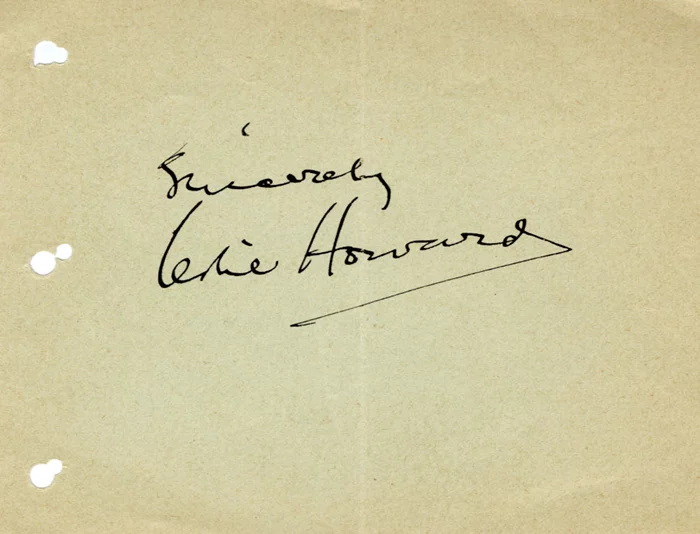 Sincerely
Leslie Howard